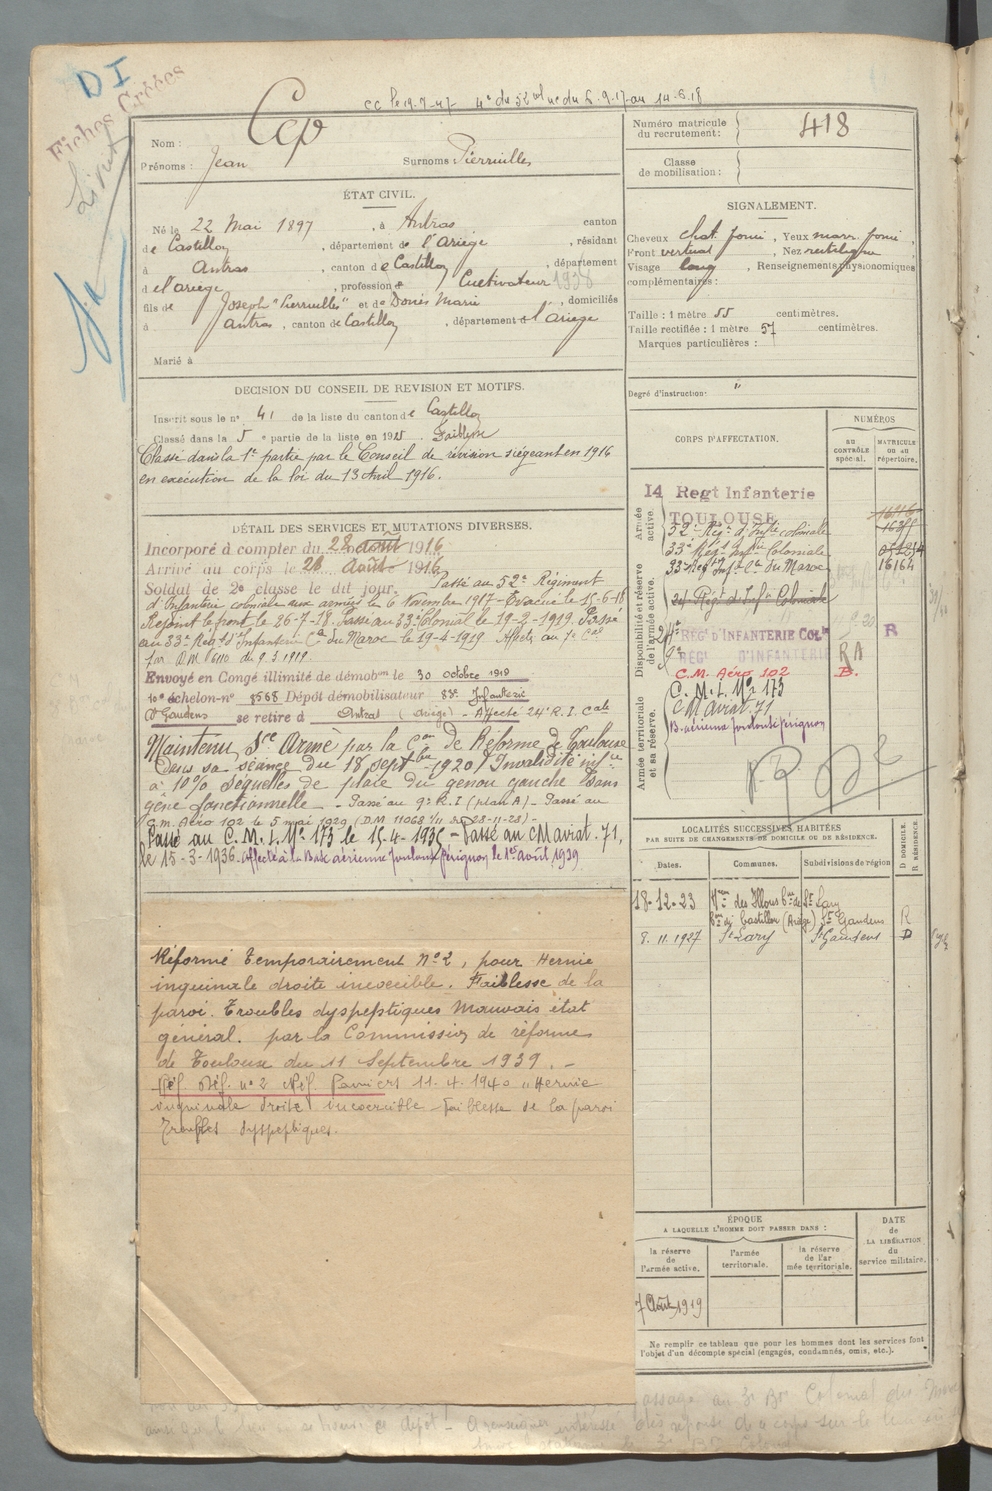 DI
Fiches Créées
cc le 19-7-47 4e du 52 col ne du 6-9-17 au 14-6-18
Nom : Cep
Prénoms : Jean Surnoms Pierruilles
ÉTAT CIVIL.
Né le 22 Mai 1897, à Antras canton
de Castillon, département de l'Ariège, résidant
à Antras, canton de Castillon, département
d el'ariège, profession de Cultivateur 1938
fils de Joseph "Pierruilles" et de Donès Marie, domiciliés
à Antras, canton de Castillon, département de l'ariège
Marié à
DECISION DU CONSEIL DE REVISION ET MOTIFS.
Inscrit sous le n° 41 de la liste du canton de Castillon
Classé dans la 5e partie de la liste en 1915. Faiblesse
Classé dans la 1e partie par le Conseil de révision siégeant en 1916
en exécution de la loi du 13 Avril 1916.
DÉTAIL DES SERVICES ET MUTATIONS DIVERSES.
Incorporé à compter du 28 août 1916
Arrivé au corps le 28 Août 1916
Soldat de 2e classe le dit jour. Passé au 52e Régiment
d'Infanterie coloniale aux armées le 6 Novembre 1917 - Evacué le 15-6-18
Rejoint le front le 26-7-18. Passé au 33e Colonial le 19-2-1919. Passé
au 33e Régt d'Infanterie Cale du Maroc le 19-4-1919 Affecté au 7e Cal
par DM 8610 du 9.3.1919.
Envoyé en Congé illimité de démobon le 30 octobre 1919
10e échelon - n° 8568 Dépôt démobilisateur 83e Infanterie
St Gaudens se retire à Antras (Ariège) - Affecté 24e R. I. Cale
Maintenu Sce Armé par la Con de Réforme de Toulouse
Dans sa séance du 18 Septbre 1920. Invalidité infre
à 10% Séquelles de plaie du genou gauche sans
gêne fonctionnelle - Passé au 9e R.I (plan A) - Passé au
C.m. Aéro 102 le 5 mai 1929 (D.M 11068 1/11 du 28-11-28) -
Passé au C. M. I. No 173 le 15-4-1935 - Passé au CM aviat. 71,
le 15-3-1936. Affecté à la Base aérienne Toulouse Pérignon le 1er août 1939
Réformé Temporairement No 2, pour Hernie
inguinale droite incoercible. Faiblesse de la
paroi. Troubles dyspeptiques Mauvais état
général. par la Commission de réformes
de Toulouse du 11 Septembre 1939. -
Réf. Déf. no 2 Réf. Pamiers 11. 4. 1940 "Hernie
inguinale droite incoercible - faiblesse de la paroi
Troubles dyspeptiques.
Numéro matricule du recrutement : 418
Classe de mobilisation :
SIGNALEMENT.
Cheveux chat. foncé, Yeux marr. foncé,
Front vertical, Nez rectiligne
Visage long, Renseignements physionomiques
complémentaires :
Taille : 1 mètre 55 centimètres.
Taille rectifiée : 1 mètre 57 centimètres.
Marques particulières :
Degré d'instruction : "
CORPS D'AFFECTATION.
NUMÉROS
AU CONTRÔLE spécial.
MATRICULE OU AU répertoire.
Armée active.
14 Regt Infanterie
TOULOUSE
52e Rég. d'Infie coloniale
33e Régt Infie Coloniale
33e Regt Infie Cle du Maroc 16164
Disponibilité et réserve de l'armée active.
24e Régt d'Infie Coloniale
24e RÉGt D'INFANTERIE COLle R
9e RÉGt D'INFANTERIE RA
C.M. Aéro 102 B.
Armée territoriale et sa réserve.
C. M. I. No 173
CM aviat. 71
B. aérienne Toulouse Pérignon
LOCALITÉS SUCCESSIVES HABITÉES
PAR SUITE DE CHANGEMENTS DE DOMICILE OU DE RÉSIDENCE.
Dates. Communes. Subdivisions de région D DOMICILE. R RÉSIDENCE.
18-12-23 des Illous Cne de St Lary
Con de Castillon (Ariège) St Gaudens R
8. 11. 1927 St Lary St Gaudens D
ÉPOQUE
A LAQUELLE L'HOMME DOIT PASSER DANS :
DATE de LA LIBÉRATION du service militaire.
la réserve de l'armée active.
l'armée territoriale.
la réserve de l'armée territoriale.
7 Août 1919
Ne remplir ce tableau que pour les hommes dont les services font
l'objet d'un décompte spécial (engagés, condamnés, omis, etc.).